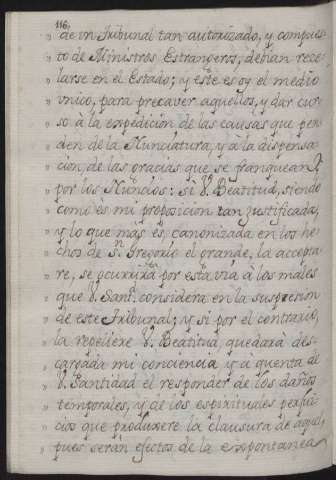 116.
" de vn Tribunal tan autorizado, y compues
" to de Ministros Estrangeros, debian rece
" larse en el Estado; y este es oy el medio
" vnico, para precaver aquellos, y dar cur
" so à la expedicion de las causas que pen
" den de la Nunciatura, y à la dispensa
" cion, de las gracias que se franquean
" por los Nuncios: si V. Beatitud, siendo
" como es mi proposicion tan justificada,
" y lo que mas es, canonizada en los he
" chos de Sn. Gregorio el grande, la accepta
" re, se ocurrirà por esta via à los males
" que V. Santd. considera en la suspension
" de este Tribunal; y si por el contrario,
" la repeliere V. Beatitud, quedarà des
" cargada mi conciencia y à quenta de
" V. Santidad el responder de los daños
" temporales, y de los espirituales perjui
" cios que produxere la clausura de aquel,
" pues seràn efectos de la expontanea